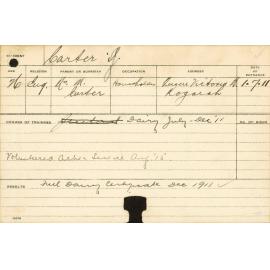 STUDENT Carter J.
AGE RELIGION PARENT OR GUARDIAN OCCUPATION ADDRESS DATE OF ENTRANCE
Mr. Householder Queen Victoria St 1-7-11
Carter Kogarah
COURSE OF TRAINING Dairy July-Dec '11 NO. OF BOOK
Volunteered Active Service Aug '15.
RESULTS Full Dairy Certificate Dec 1911